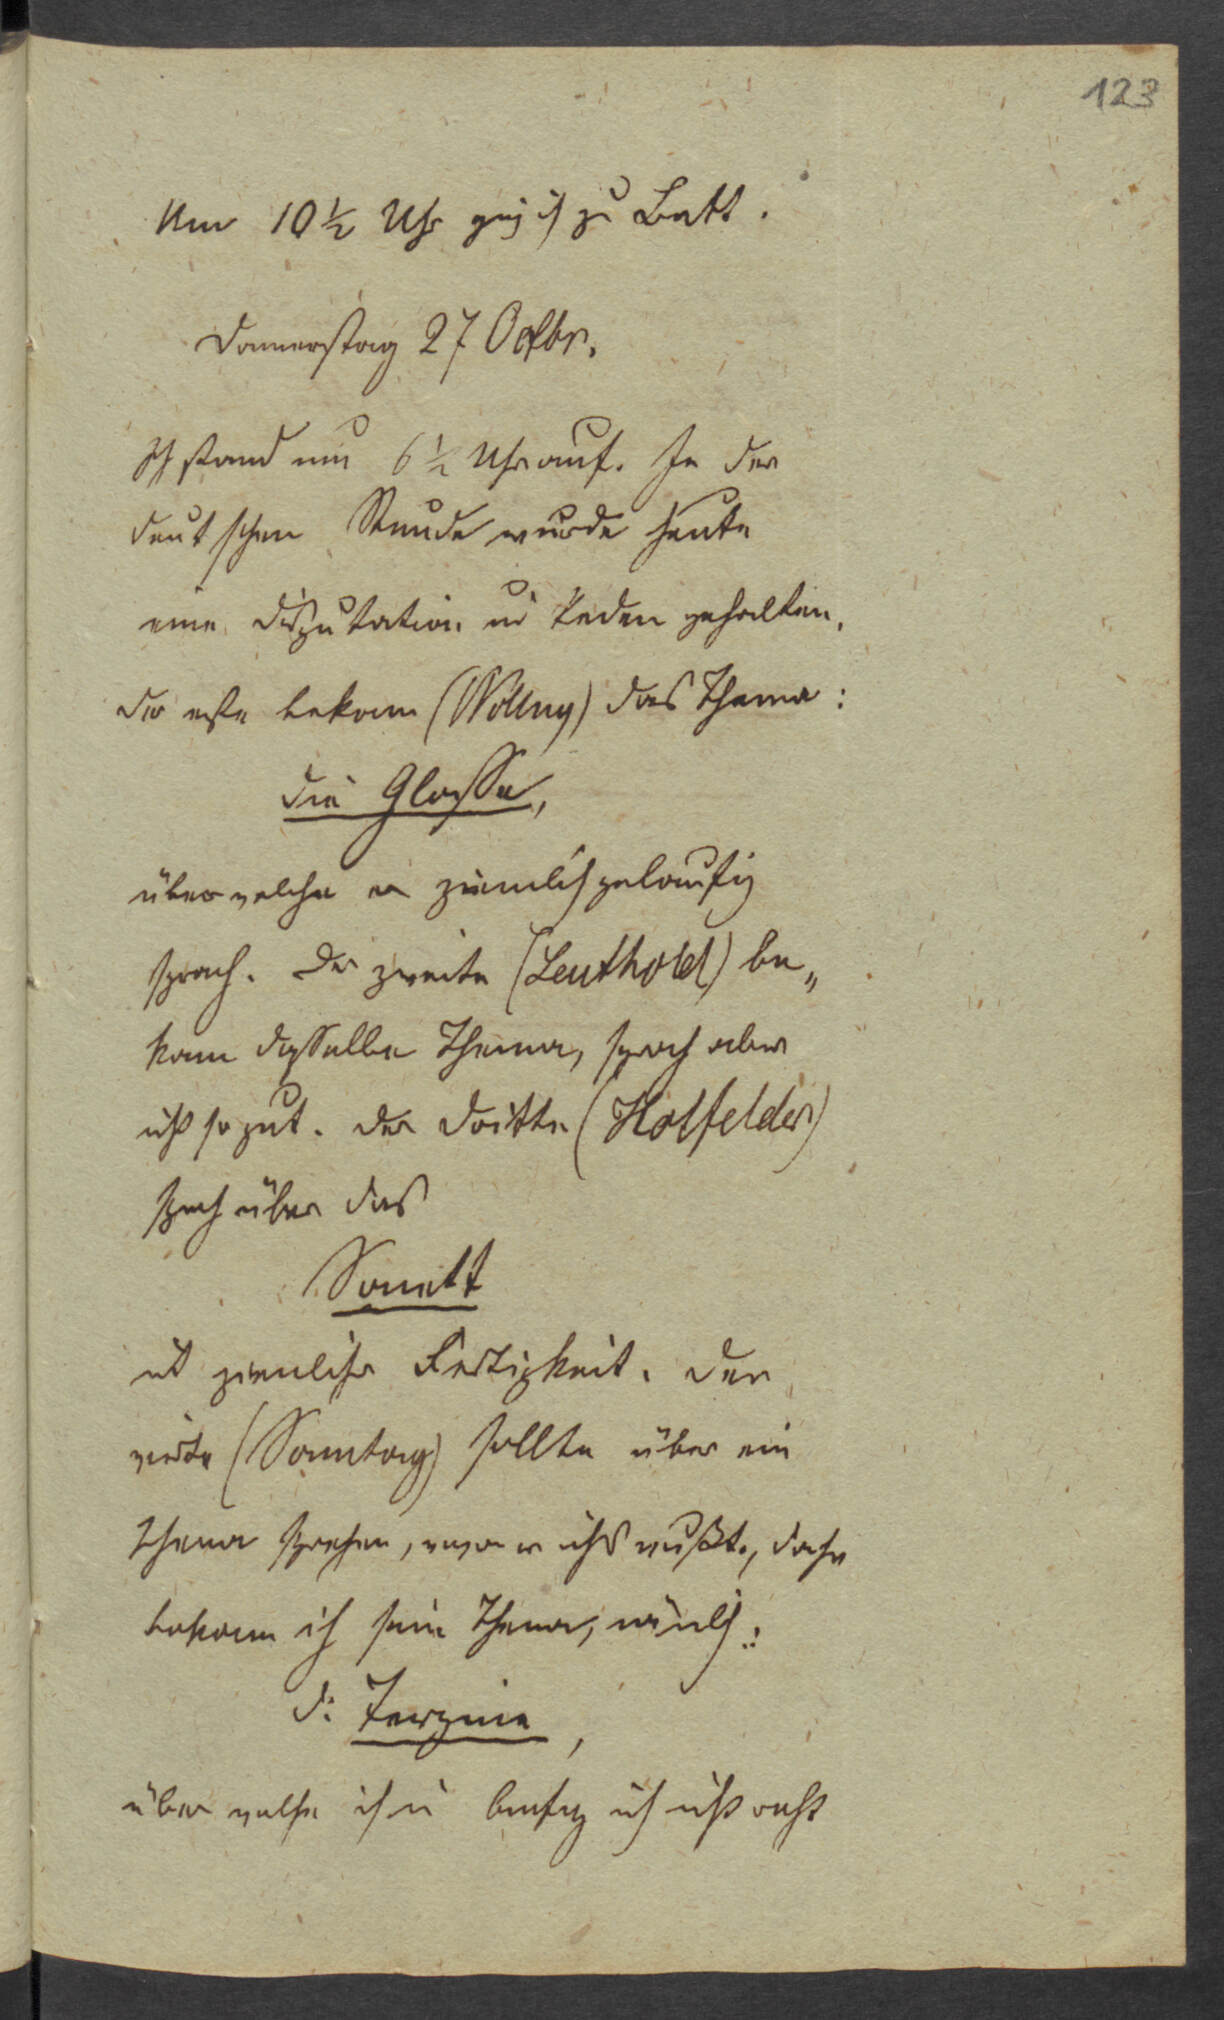 123
Um 10 ½ Uhr ging ich zu Bett.
Donnerstag 27 Octbr.
Ich stand um 6 ½ Uhr auf. In der
deutschen Stunde wurde heute
eine Disputation in Reden gehalten.
Der erste bekam (Wöllny) das Thema:
Die Glosse,
über welche er ziemlich geläufig
sprach. Der zweite (Leuthold) be„
kam dasselbe Thema, sprach aber
nicht so gut. Der dritte (Hotfelder)
sprach über das
Sonett
mit ziemlicher Fertigkeit. Der
vierte (Sonntag) sollte über ein
Thema sprechen, was er nicht wußte, daher
bekam ich sein Thema, nämlich:
die Terzine,
über welche ich in ich nicht recht